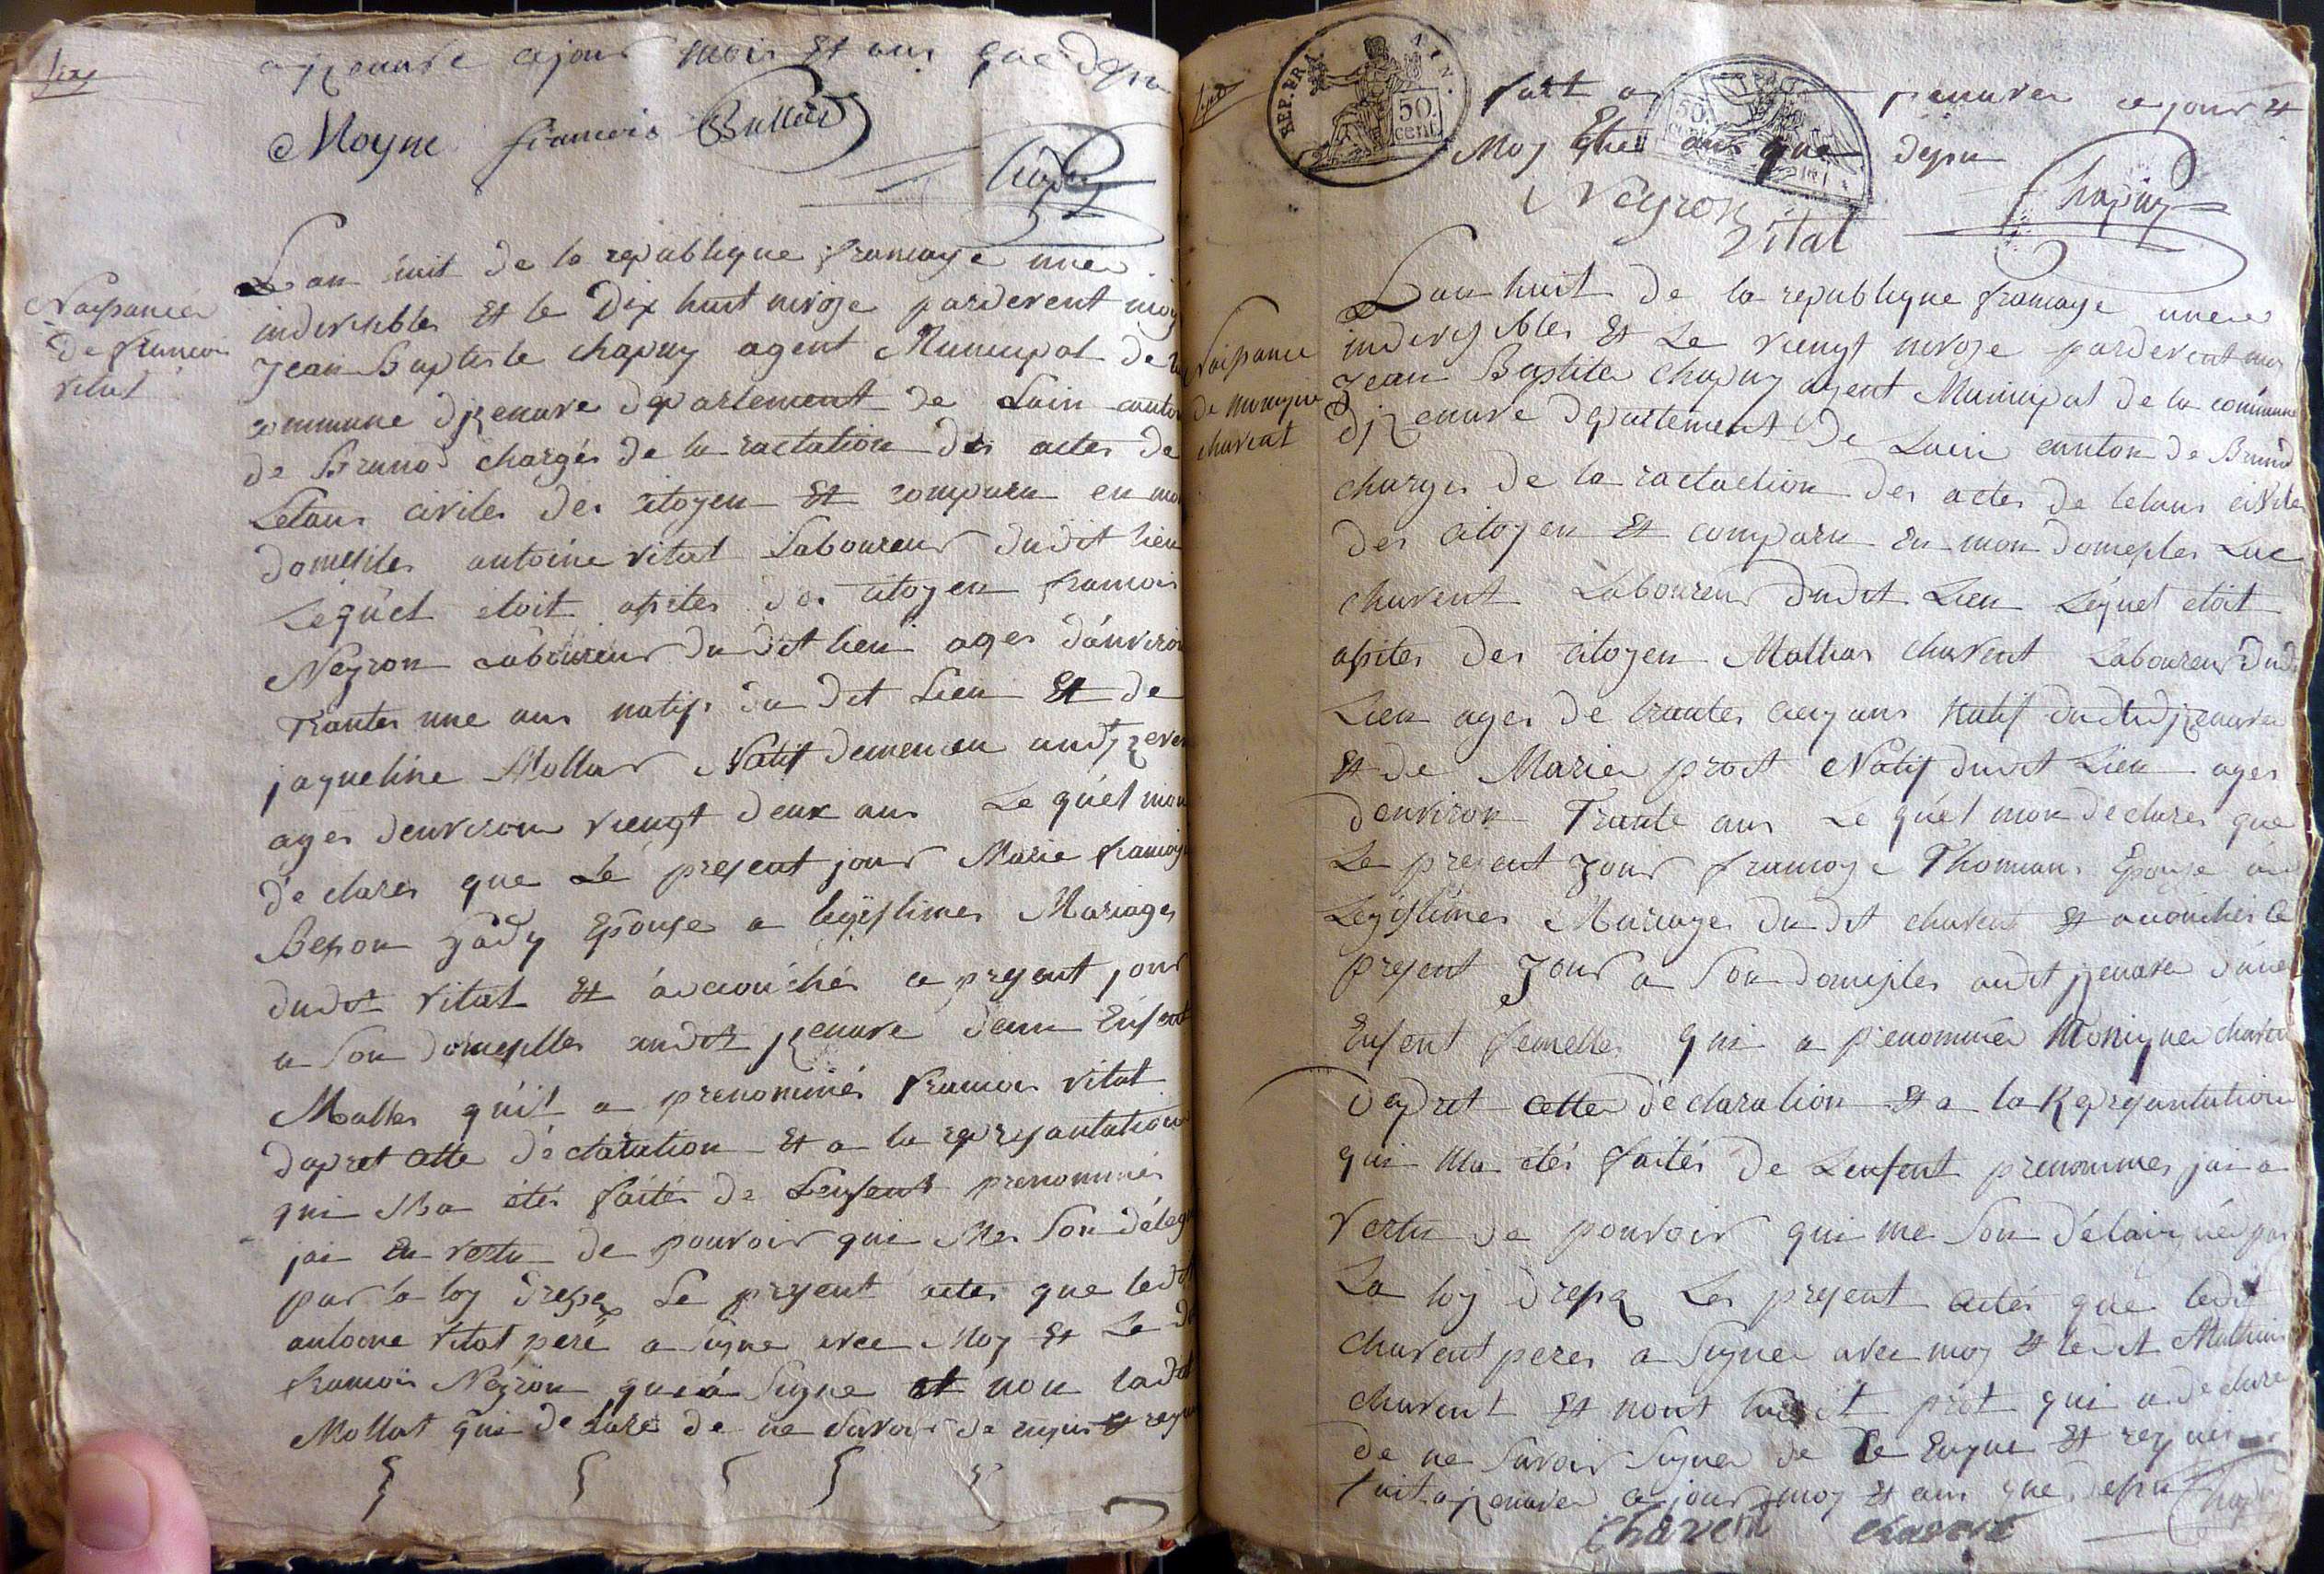 six
a izenave ce jour mois et ans que depu
Moyne francois Bullod
Chapuy
Naissance
de francois
vital
Lan huit de la republique francoise une
indivisibles et le Dix huit nivose pardevent moy
Jean Baptiste Chapuy agent Municipal de la
commune dizenave departement de Lain canton
de Brenod chargés de la ractation des actes de
Letaus civiles des citoyen et comparu en mon
domesiles antoine vital Laboureur dudit lieu
Lequel etoit asistes des citoyen francois
Neyron Laboureur du dit lieu ages d'environ
trantes une ans natif du dit Lieu et de
jaqueline Mollar Natif demeuran audit izenave
ages denviron viengt deux ans Le quel mon
déclares que Le present jour Marie francoise
Beson Epouses a legistimes Mariages
dudit vital et a accouchés ce present jour
a Son domesilles audit izenave dun Enfent
Malles qu'il a prenommés francois vital
dapret cette déclaration et a la represantation
qui Ma étés faités de Lenfent prenommés
jai en vertu de pouvoir qui Mes Son délegué
par la loy dresse Le present actes que ledit
antoine vital pere a signe avec Moy et Le dit
francois Neyron qui a Signe et non ladit
Mollat qui déclaré de ne Savoir de enquis et requis
REP. FRA.
50.
cent.
50.
cent
fait a izenaves ce jour et
Moy et ans que depu
Neyron
Vital
Chapuy
Naissance
de monique
charent
Lan huit de la republique francoise une
indivisibles et Le viengt nivose pardevent moy
Jean Baptiste Chapuy agent Municipal de la commune
dizenave departement de Lain canton de Brenod
charges de la ractaction des actes de letaus civiles
des citoyen et comparu en mon domesiles Luc
charvent Laboureur dudit Lieu Lequel etoit
asistes des citoyen Mathias charvent Laboureur dudit
Lieu ages de trantes cinq ans natif dudit dizenaves
et de Maries prost Natif dudit Lieu ages
denviron Trante ans Le quel mon declares que
Le present Jour francoise Thomans Epouse a
Legistimes Mariages du dit charvent et accouchés ce
present Jour a Son domesiles audit izenave dúne
Enfent femelles qui a prenommés Moniques charvent
Dapret cettes déclaration et a la Represantation
qui Ma étés faités de Lenfent prenommes jai a
vertu de pouvoir qui me Son délaigués par
La loy dresse Les present actés que ledit
charvent peres a Signes avec moy et ledit Mathias
charvent et nont ladit prot qui a declare
de ne Savoir Signes de ce Enquis et requis
fait a izenaves ce jour moy et ans que depu
Chapuy
Charvent charvent